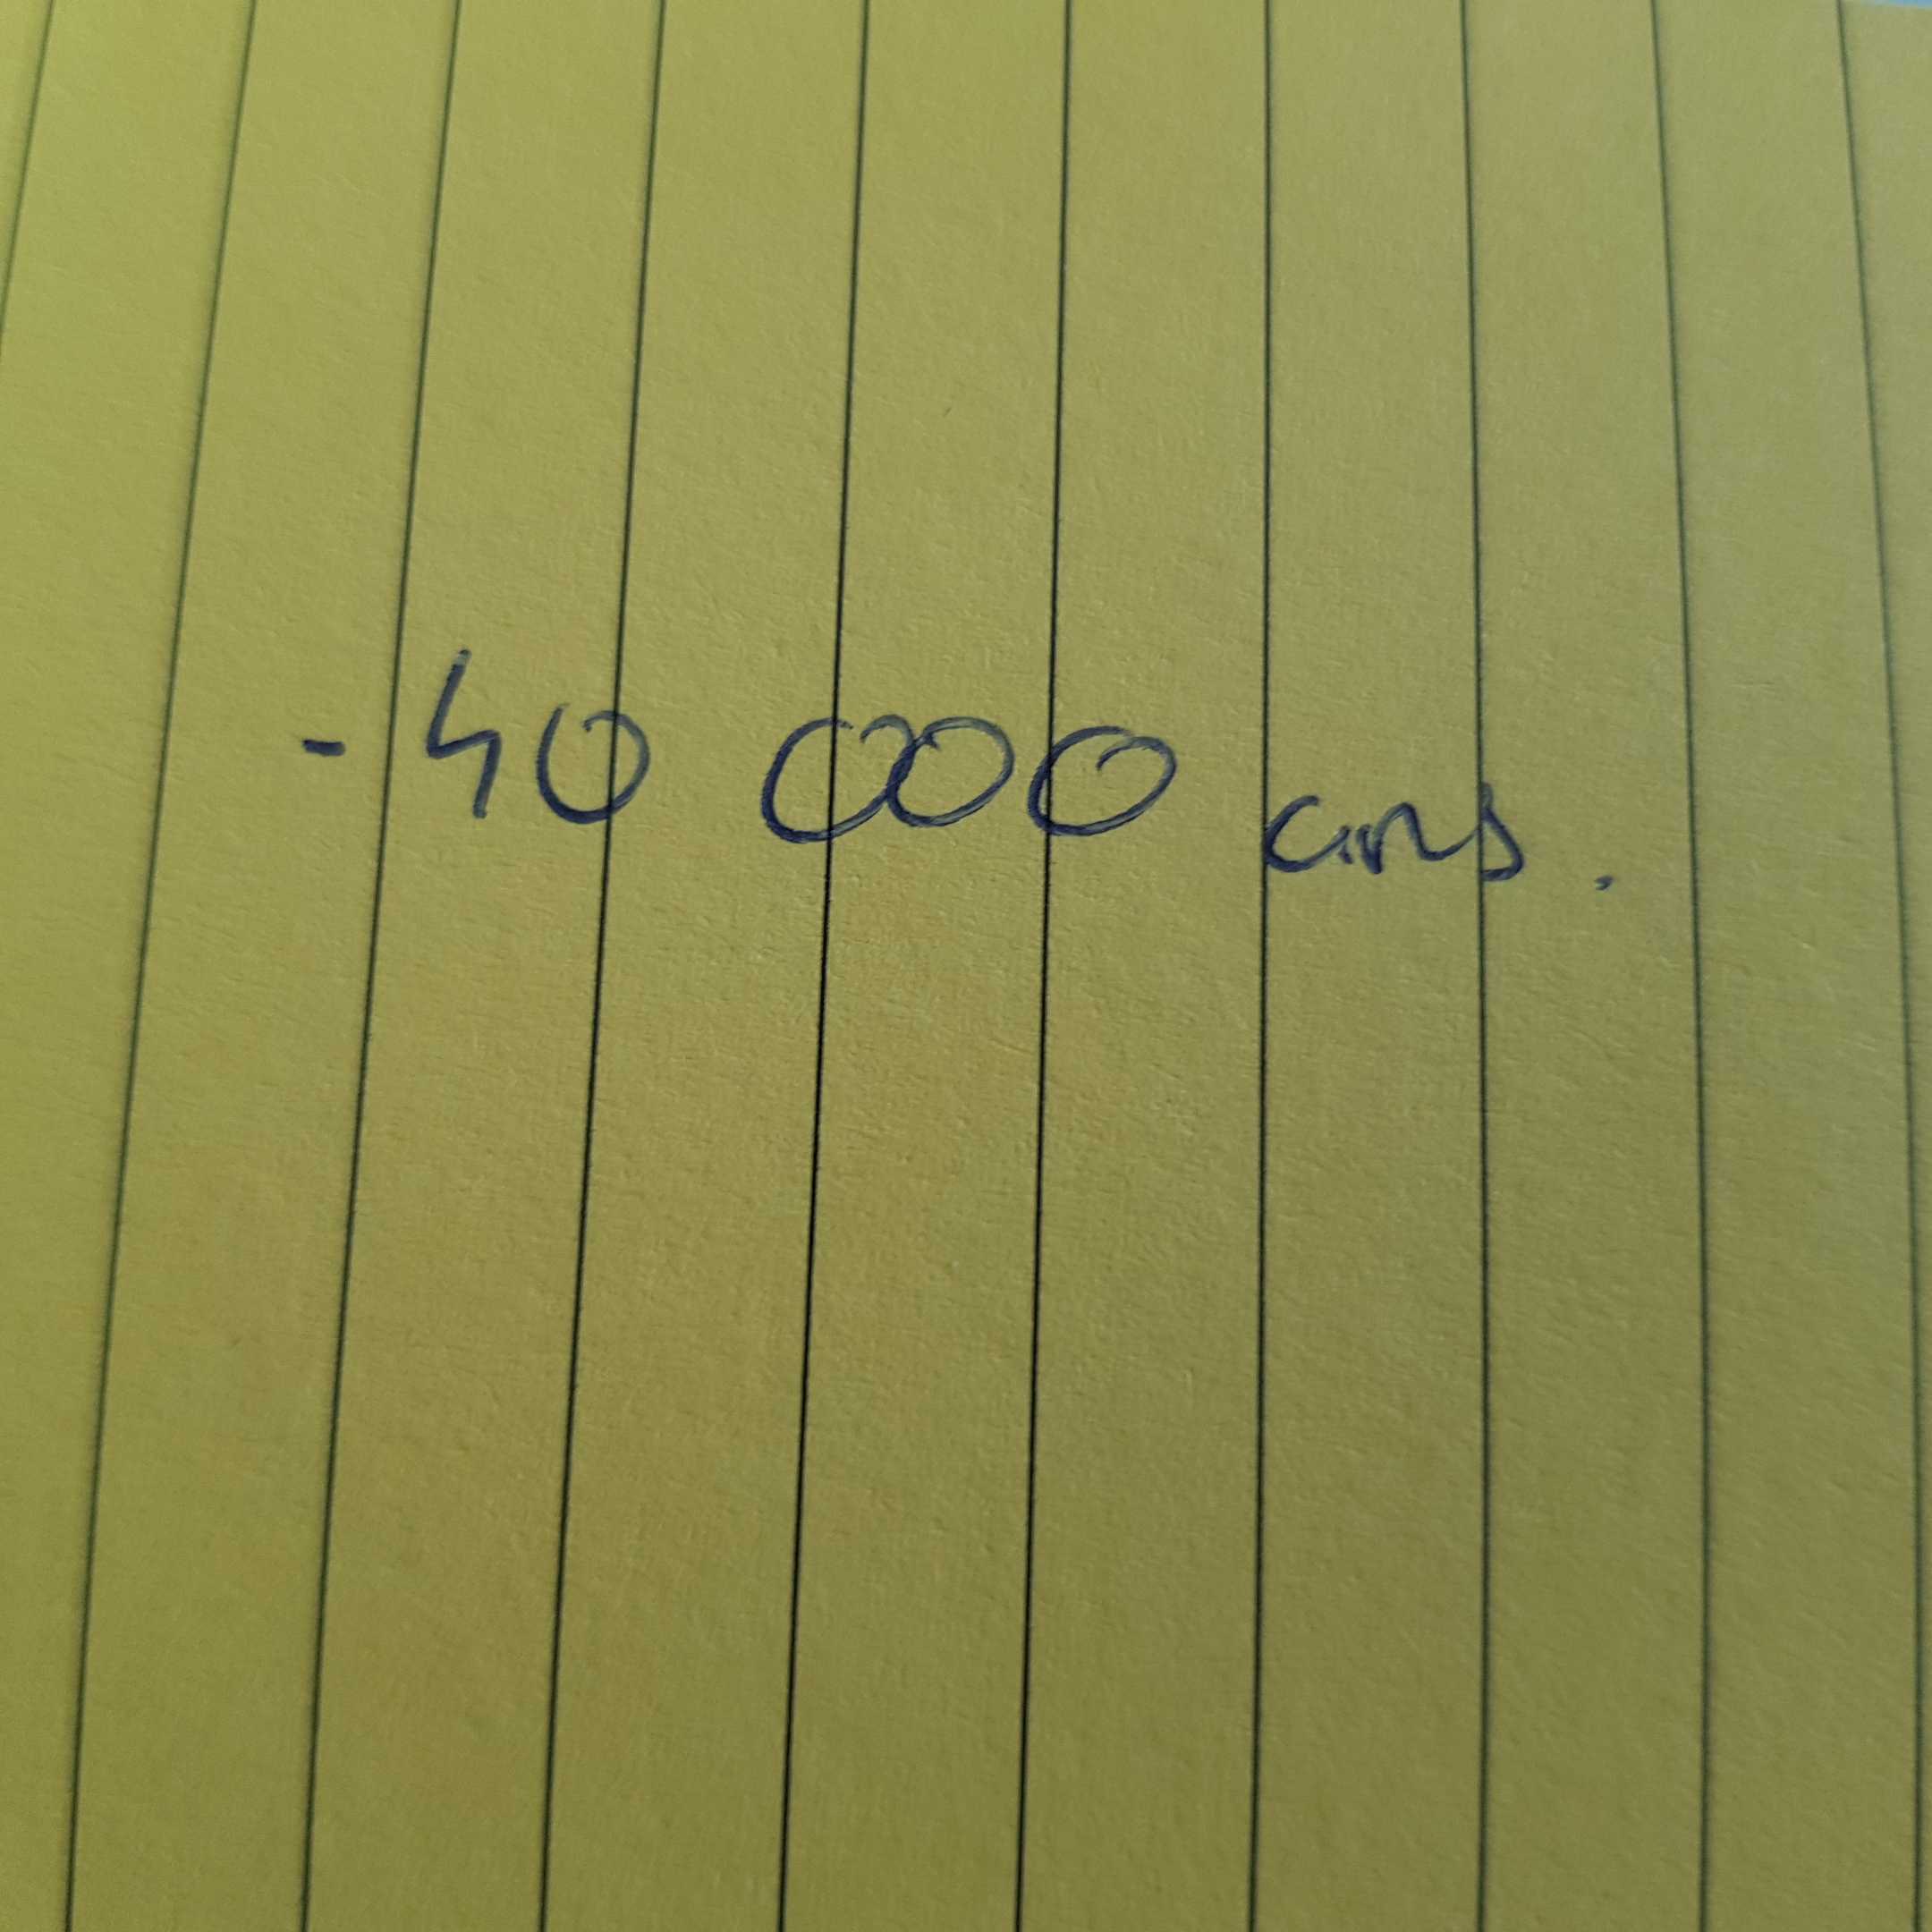 - 40 000 ans.